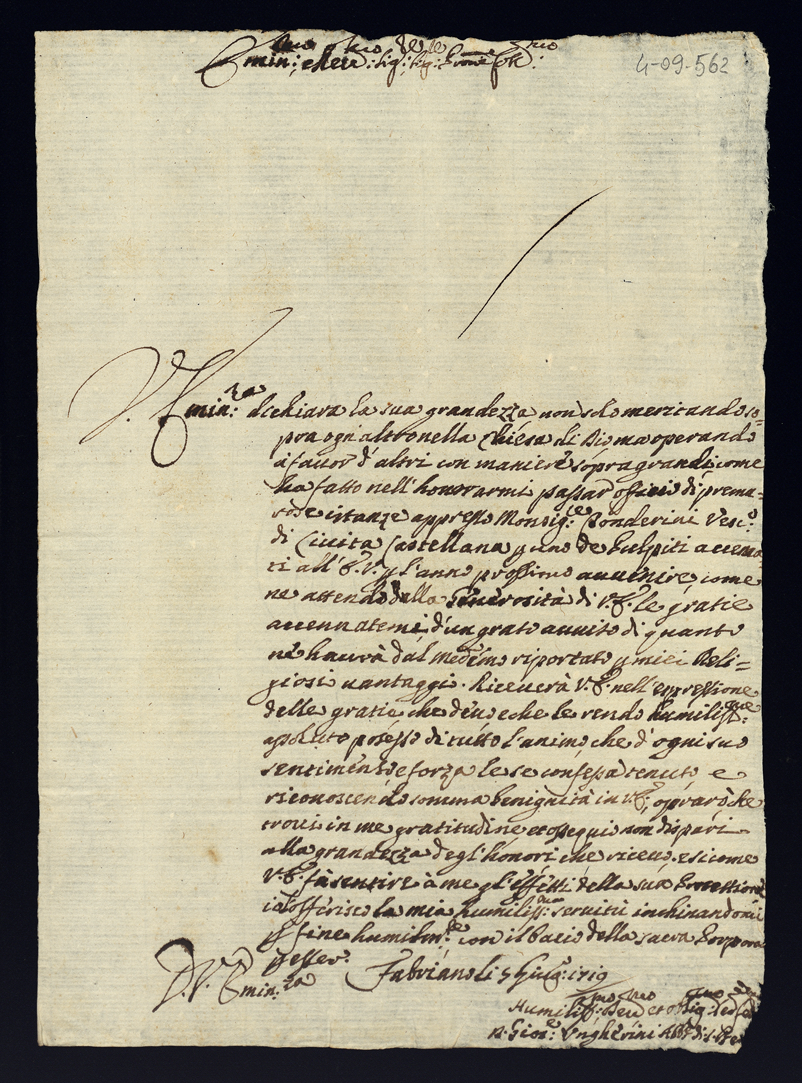 Emin:mo e Rev:mo Sig:re Sig:re Prone Col:mo
4-09-562
V. Emin:za dichiara la sua grandezza non solo meritando so=
pra ogn'altro nella Chiesa di Roma operando
à favor d'altri con maniere sopragrandi come
ha fatto nell'honorarmi passar officii di premu=
rose istanze appresso Monsig:re Vesc:o
di Civita Castellana p uno de Pulpiti
ti all'E.V. p l'anno prossimo avvenire, come
ne attendo dalla generosità di V.E. le gratie
accennatemi d'un grato avviso di quanto
ne havrà dal medemo riportato p miei Reli=
giosi vantaggi. Riceverà V.E. nell'espressione
delle gratie che devo e che le rendo humiliss:me
assoluto possesso di tutto l'animo, che d'ogni suo
sentimento e forza le se confessa tenuto e
riconoscendo somma benignità in V.E., oprarò che
trovi in me gratitudine et ossequio non dispari
alla grandezza degl'honori che ricevo. e si come
V.E. fà sentire à me gl'effetti della sua Protettione
io l'offerisco la mia humiliss:ma servitù inchinandomi
p fine humilm:te con il bacio della sacra Porpora
p esser.
D.V. Emin:za
Fabriano li 5 Giug: 1719
Humiliss:mo Dev:mo et oblig:mo
D. Gio: Ungherini